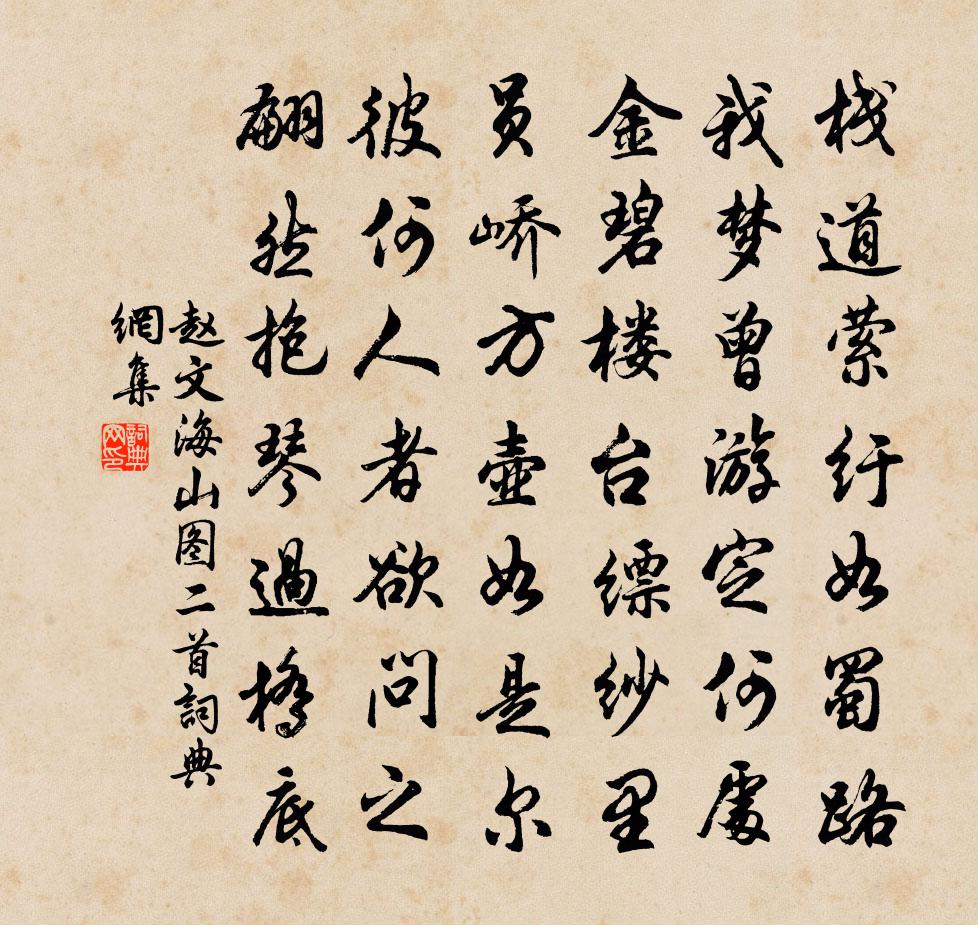 栈道萦纡如蜀路
我梦曾游定何處
金碧楼台缥纱里
员峤方壶如是尔
彼何人者欲问之
翩然抱琴過橋底
赵文海山图二首詞典
網集
詞典
网印